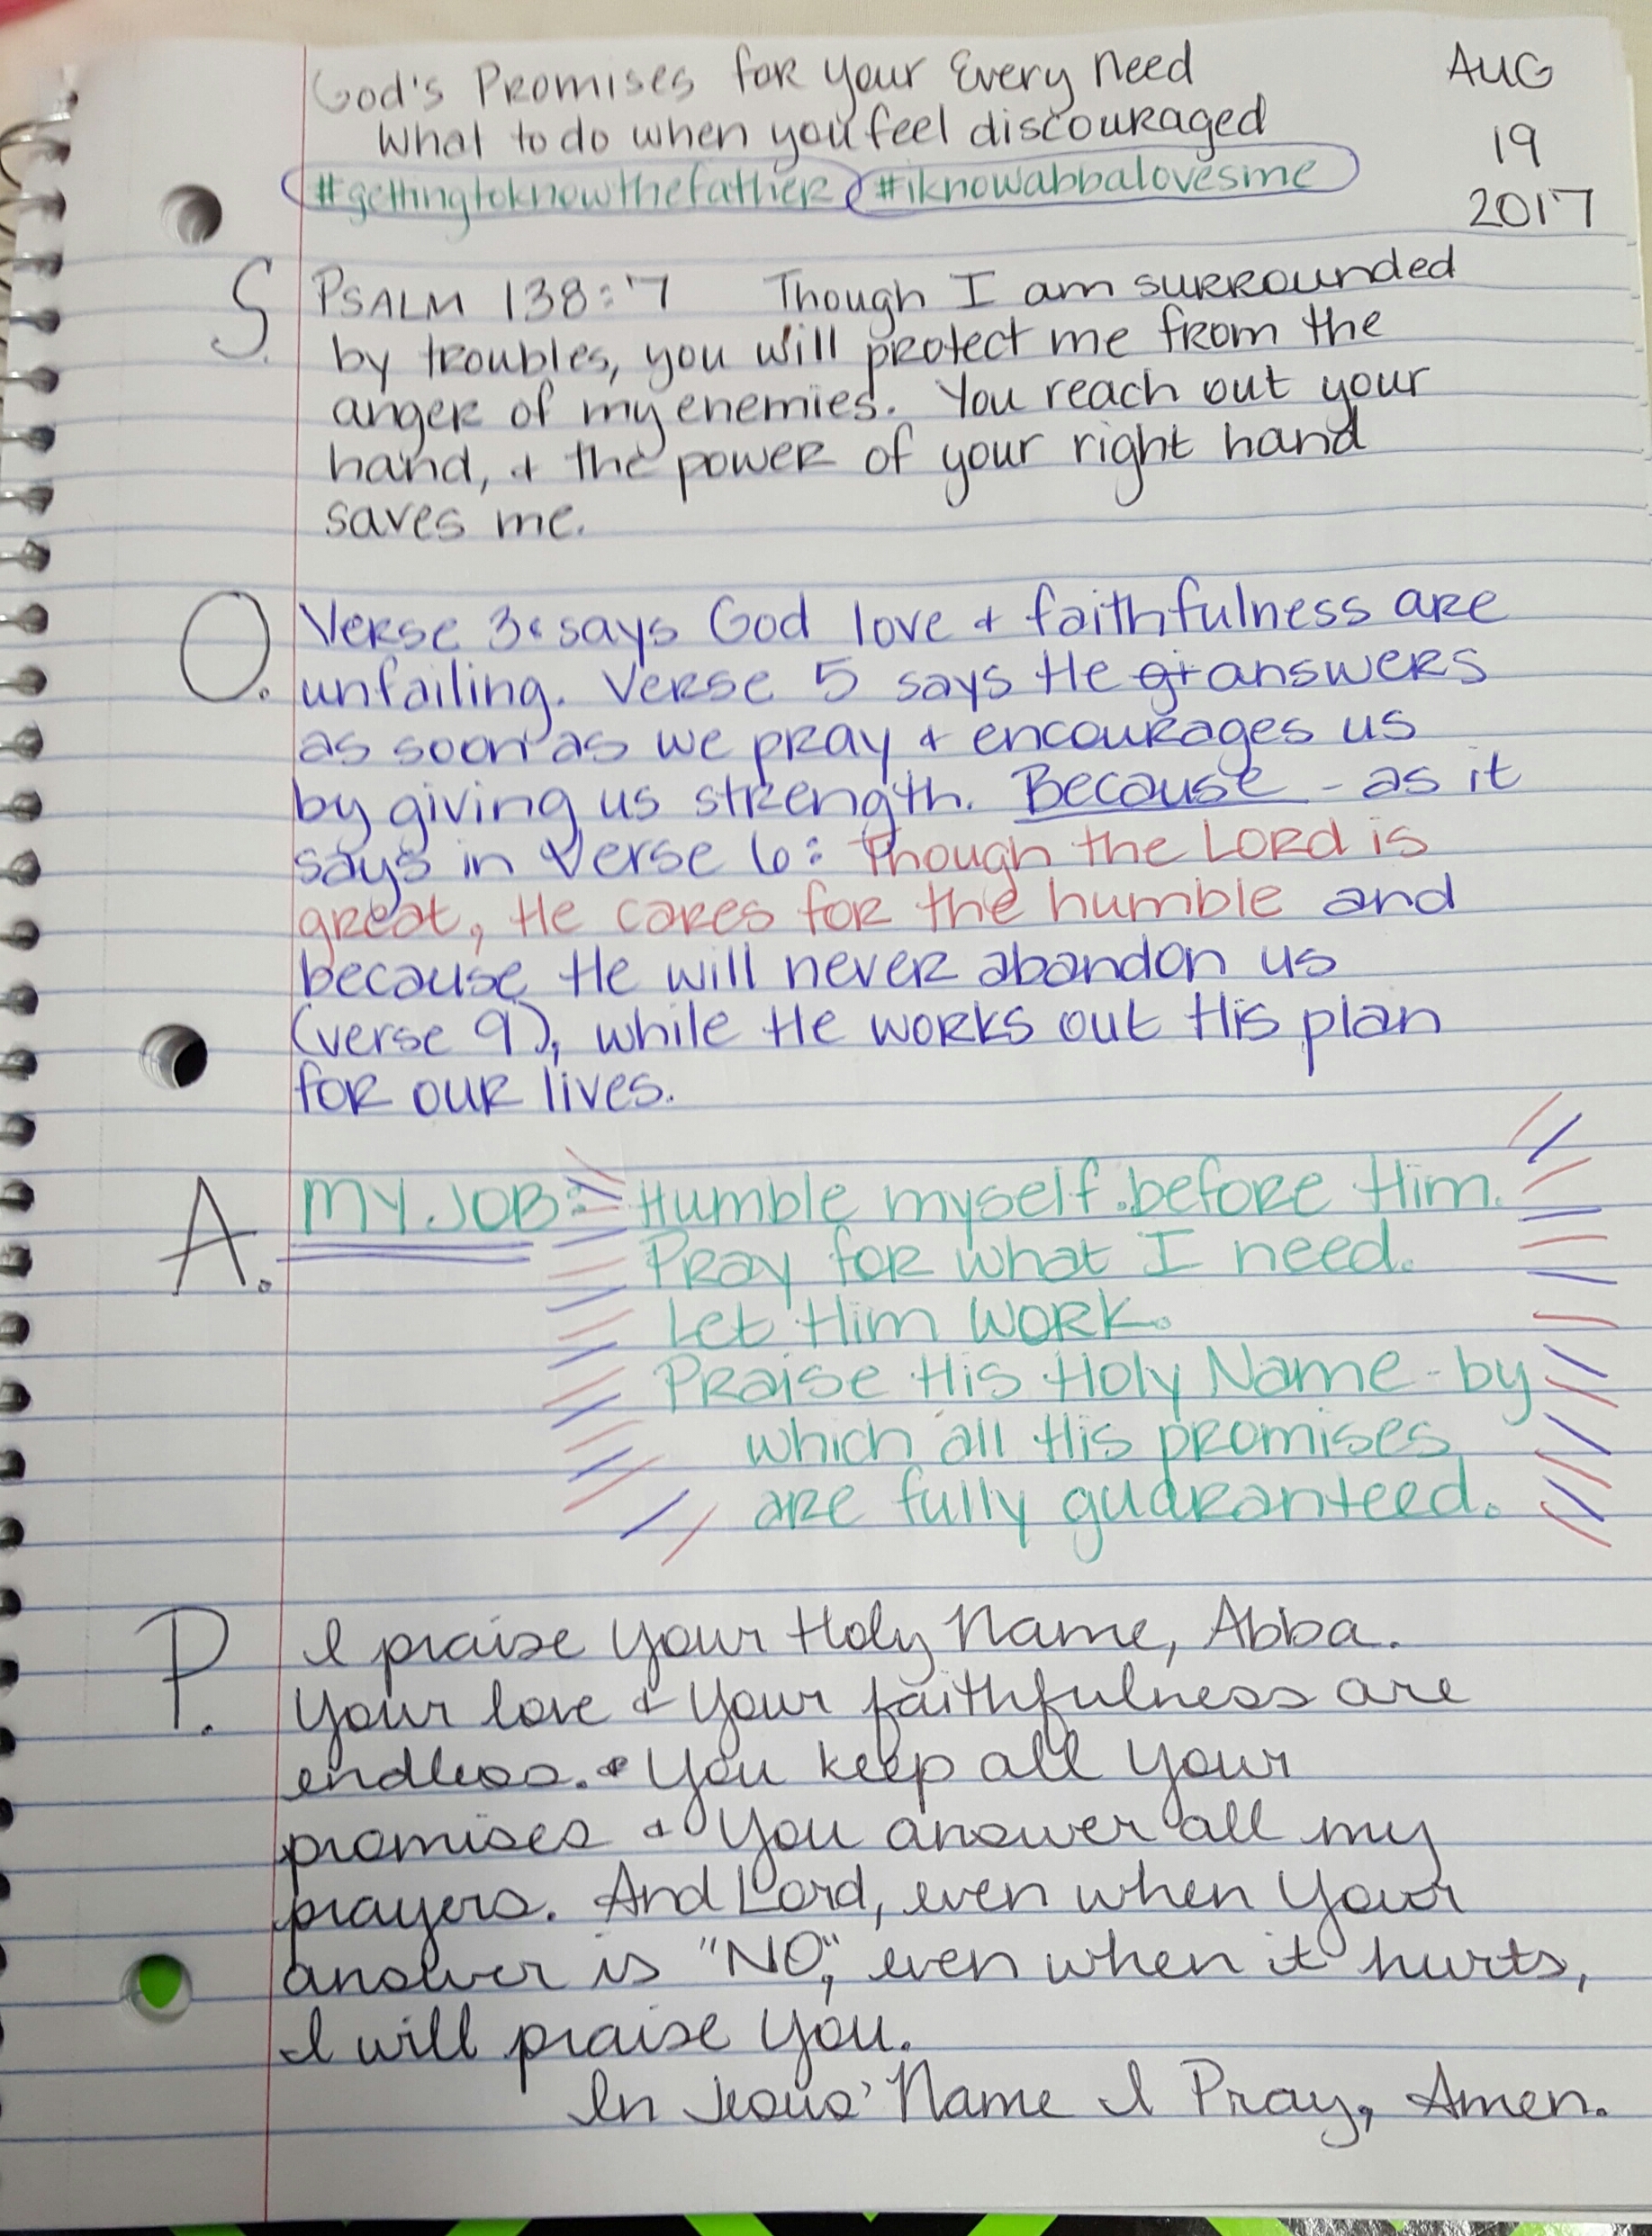 God's Promises for your Every need
AUG
What to do when you feel discouraged
19
#gettingtoknowthefather #iknowabbalovesme
2017
S. PSALM 138:7 Though I am surrounded
by troubles, you will protect me from the
anger of my enemies. You reach out your
hand, & the power of your right hand
saves me.
O. Verse 3 says God love & faithfulness are
unfailing. Verse 5 says He answers
as soon as we pray & encourages us
by giving us strength. Because - as it
says in Verse 6: Though the LORD is
great, He cares for the humble and
because He will never abandon us
(verse 9), while He works out His plan
for our lives.
A. MY JOB: Humble myself before Him.
Pray for what I need.
Let Him WORK.
Praise His Holy Name - by
which all His promises
are fully guaranteed.
P. I praise Your Holy Name, Abba.
Your love & Your faithfulness are
endless. & You keep all Your
promises & You answer all my
prayers. And Lord, even when Your
answer is "NO", even when it hurts,
I will praise You.
In Jesus' Name I Pray, Amen.